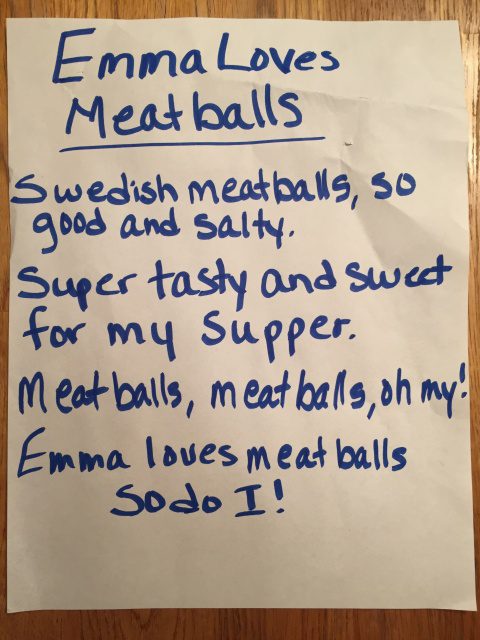 Emma Loves
Meatballs
Swedish meatballs, so
good and salty.
Super tasty and sweet
for my supper.
Meatballs, meatballs, oh my!
Emma loves meatballs
So do I!